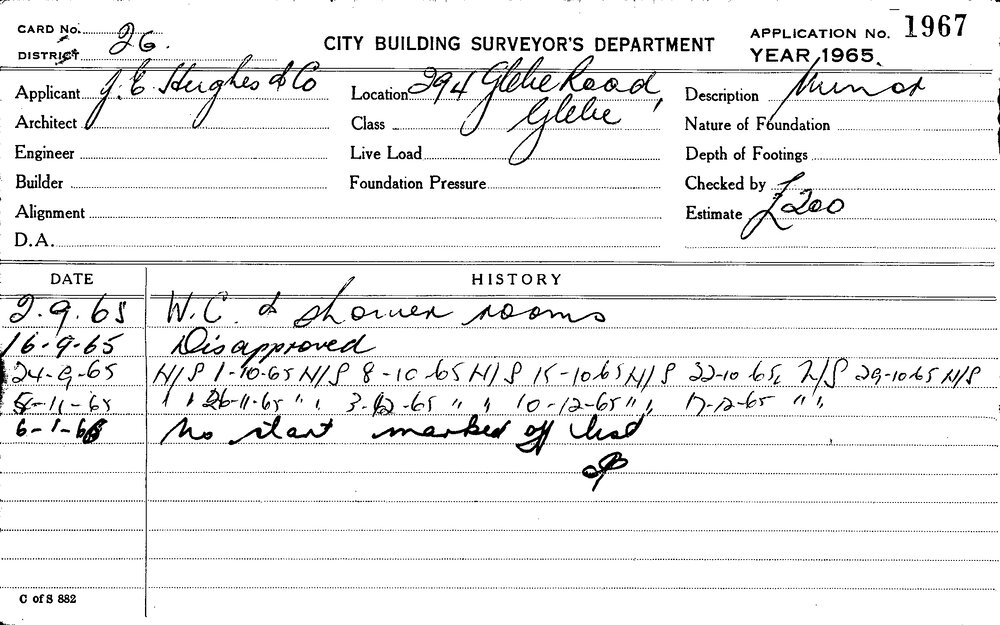 CARD No.
DISTRICT 26.
CITY BUILDING SURVEYOR'S DEPARTMENT
APPLICATION No. 1967
YEAR 1965.
Applicant J. E. Hughes & Co
Location 294 Glebe Road,
Glebe
Description Minor
Architect
Class
Nature of Foundation
Engineer
Live Load
Depth of Footings
Builder
Foundation Pressure
Checked by
Alignment
Estimate £200
D.A.
DATE HISTORY
2.9.65 W.C. & shower rooms
16-9-65 Disapproved
24-9-65 N/S 1-10-65 N/S 8-10-65 N/S 15-10-65 N/S 22-10-65 N/S 29-10-65 N/S
5-11-65 " " 26-11-65 " " 3-12-65 " " 10-12-65 " " 17-12-65 " "
6-1-66 No start marked off list
C of S 882